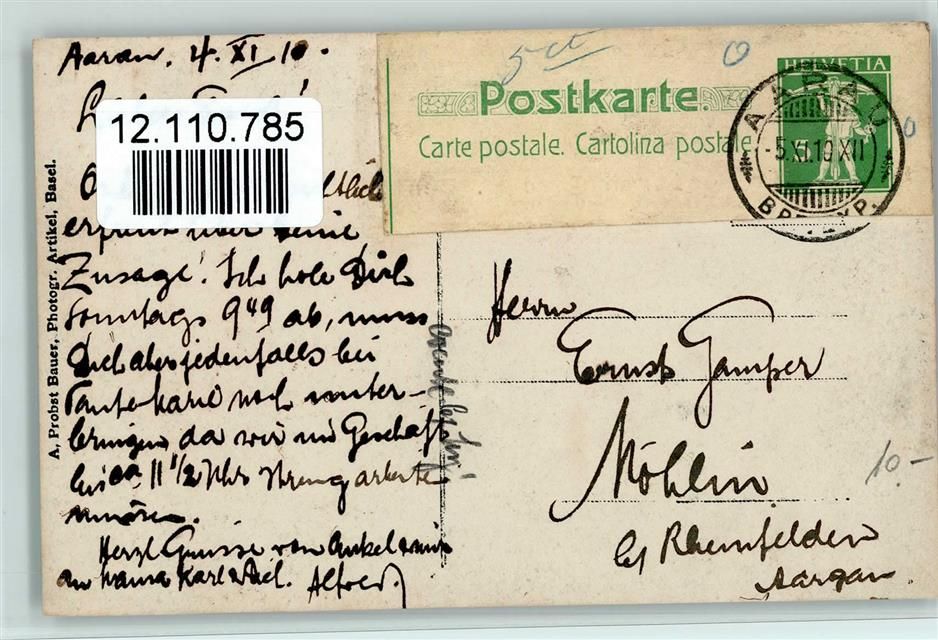 Aarau, 4. XI. 10.
12.110.785
erfreut über Deine
Zusage! Ich hole Dich
Sonntags 9 49 ab, muss
Dich aber jedenfalls bei
Tante Marie noch unter-
bringen, da wir im Geschäft
bis ca. 11 1/2 Uhr streng arbeiten
müssen.
Herzl. Grüsse von
an Mama Karl Alfred.
A. Probst Bauer, Photogr. Artikel, Basel.
5 ct
Postkarte.
Carte postale. Cartolina postale.
HELVETIA
AARAU
-5.XI.10 XII
Herrn
Ernst Gamper
Möhlin
bei Rheinfelden
Aargau.
10.-